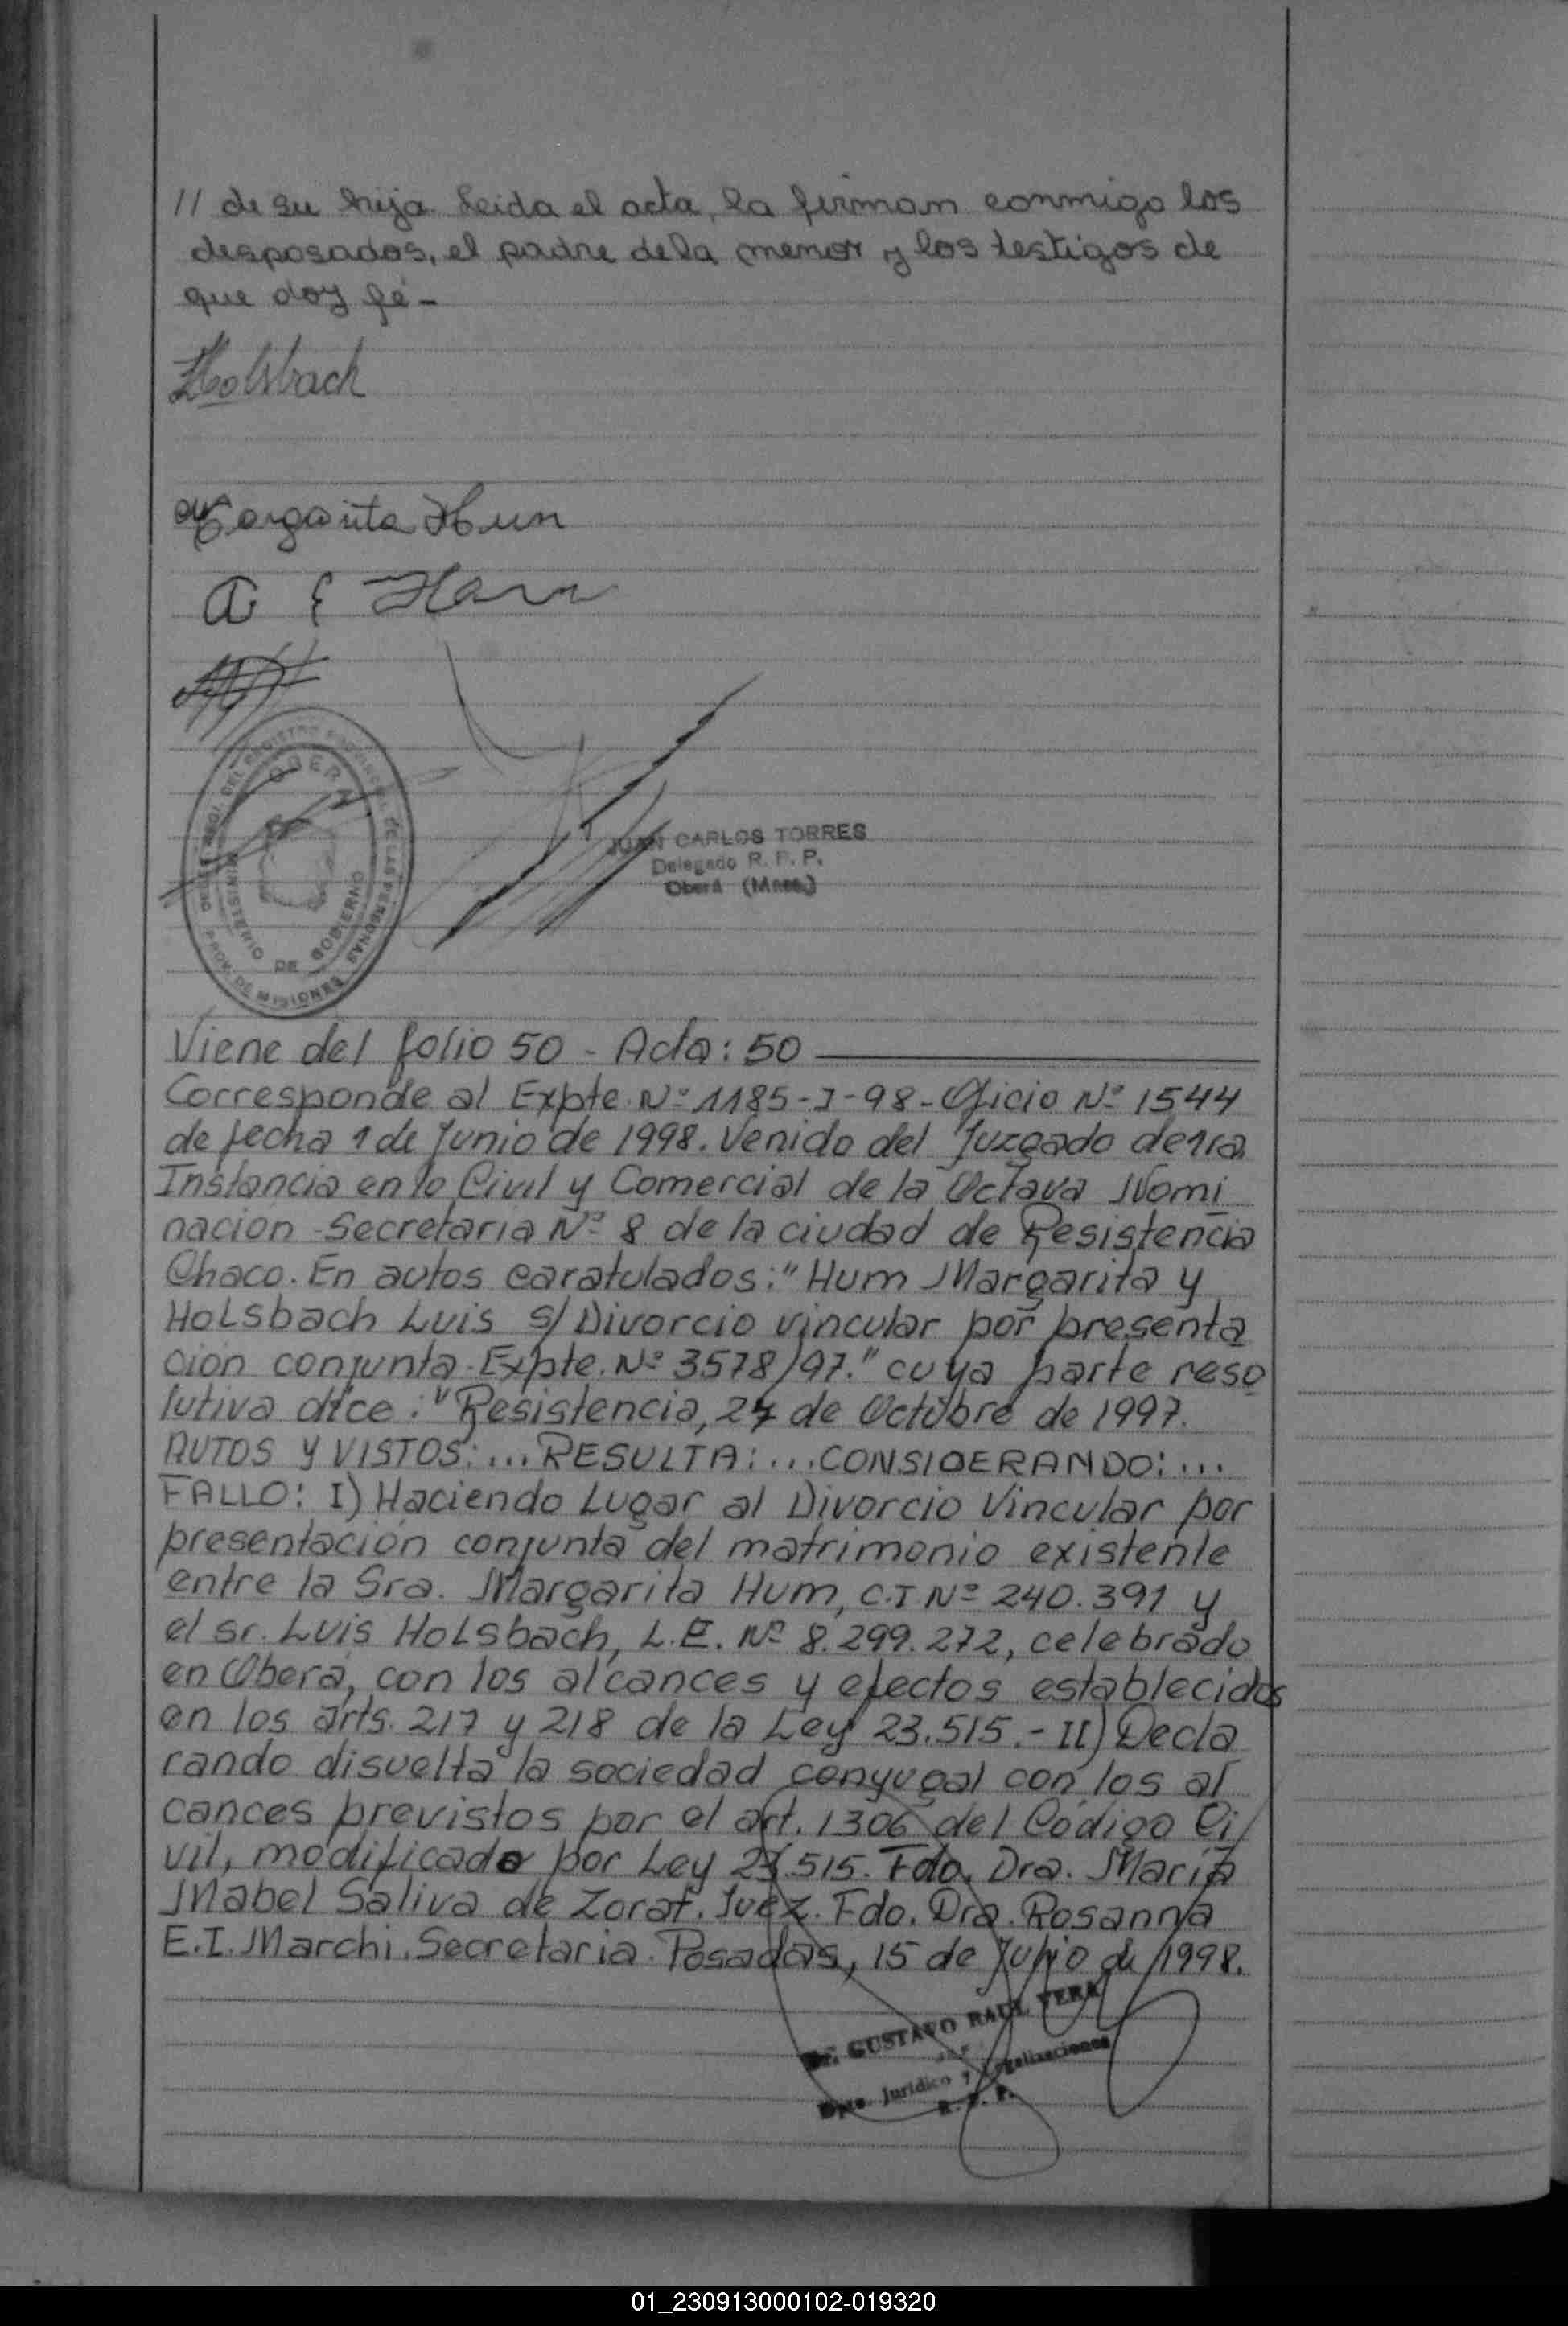 // de su hija. Leida el acta, la firman conmigo los
desposados, el padre de la menor y los testigos de
que doy fé-
Holsbach
Margarita Hun
A E Hun
DEL REGISTRO PROVINCIAL DE LAS PERSONAS
MINISTERIO DE GOBIERNO
PROV. DE MISIONES
JUAN CARLOS TORRES
Delegado R. P. P.
Oberá (Mnes.)
Viene del folio 50 - Acta: 50
Corresponde al Expte. Nº 1185-J-98-Oficio Nº 1544
de fecha 1 de Junio de 1998. Venido del Juzgado de 1ra
Instancia en lo Civil y Comercial de la Octava Nomi
nación Secretaria Nº 8 de la ciudad de Resistencia
Chaco. En autos caratulados: "Hum Margarita y
Holsbach Luis S/Divorcio vincular por presenta
ción conjunta. Expte. Nº 3578/97." cuya parte reso
lutiva dice: "Resistencia, 27 de Octubre de 1997.
AUTOS Y VISTOS: ... RESULTA: ... CONSIDERANDO: ...
FALLO: I) Haciendo Lugar al Divorcio Vincular por
presentación conjunta del matrimonio existente
entre la Sra. Margarita Hum, C.I Nº 240.391 y
el sr. Luis Holsbach, L.E. Nº 8.299.272, celebrado
en Oberá, con los alcances y efectos establecidos
en los arts. 217 y 218 de la Ley 23.515.- II) Decla
rando disuelta la sociedad conyugal con los al
cances previstos por el art. 1306 del Código Ci
vil, modificado por Ley 23.515. Fdo. Dra. María
Mabel Saliva de Zorat. Juez. Fdo. Dra. Rosanna
E.I. Marchi. Secretaria. Posadas, 15 de Julio de 1998.
Dr. GUSTAVO RAUL VERA
Dpto. Jurídico y Legalizaciones
R. P. P.